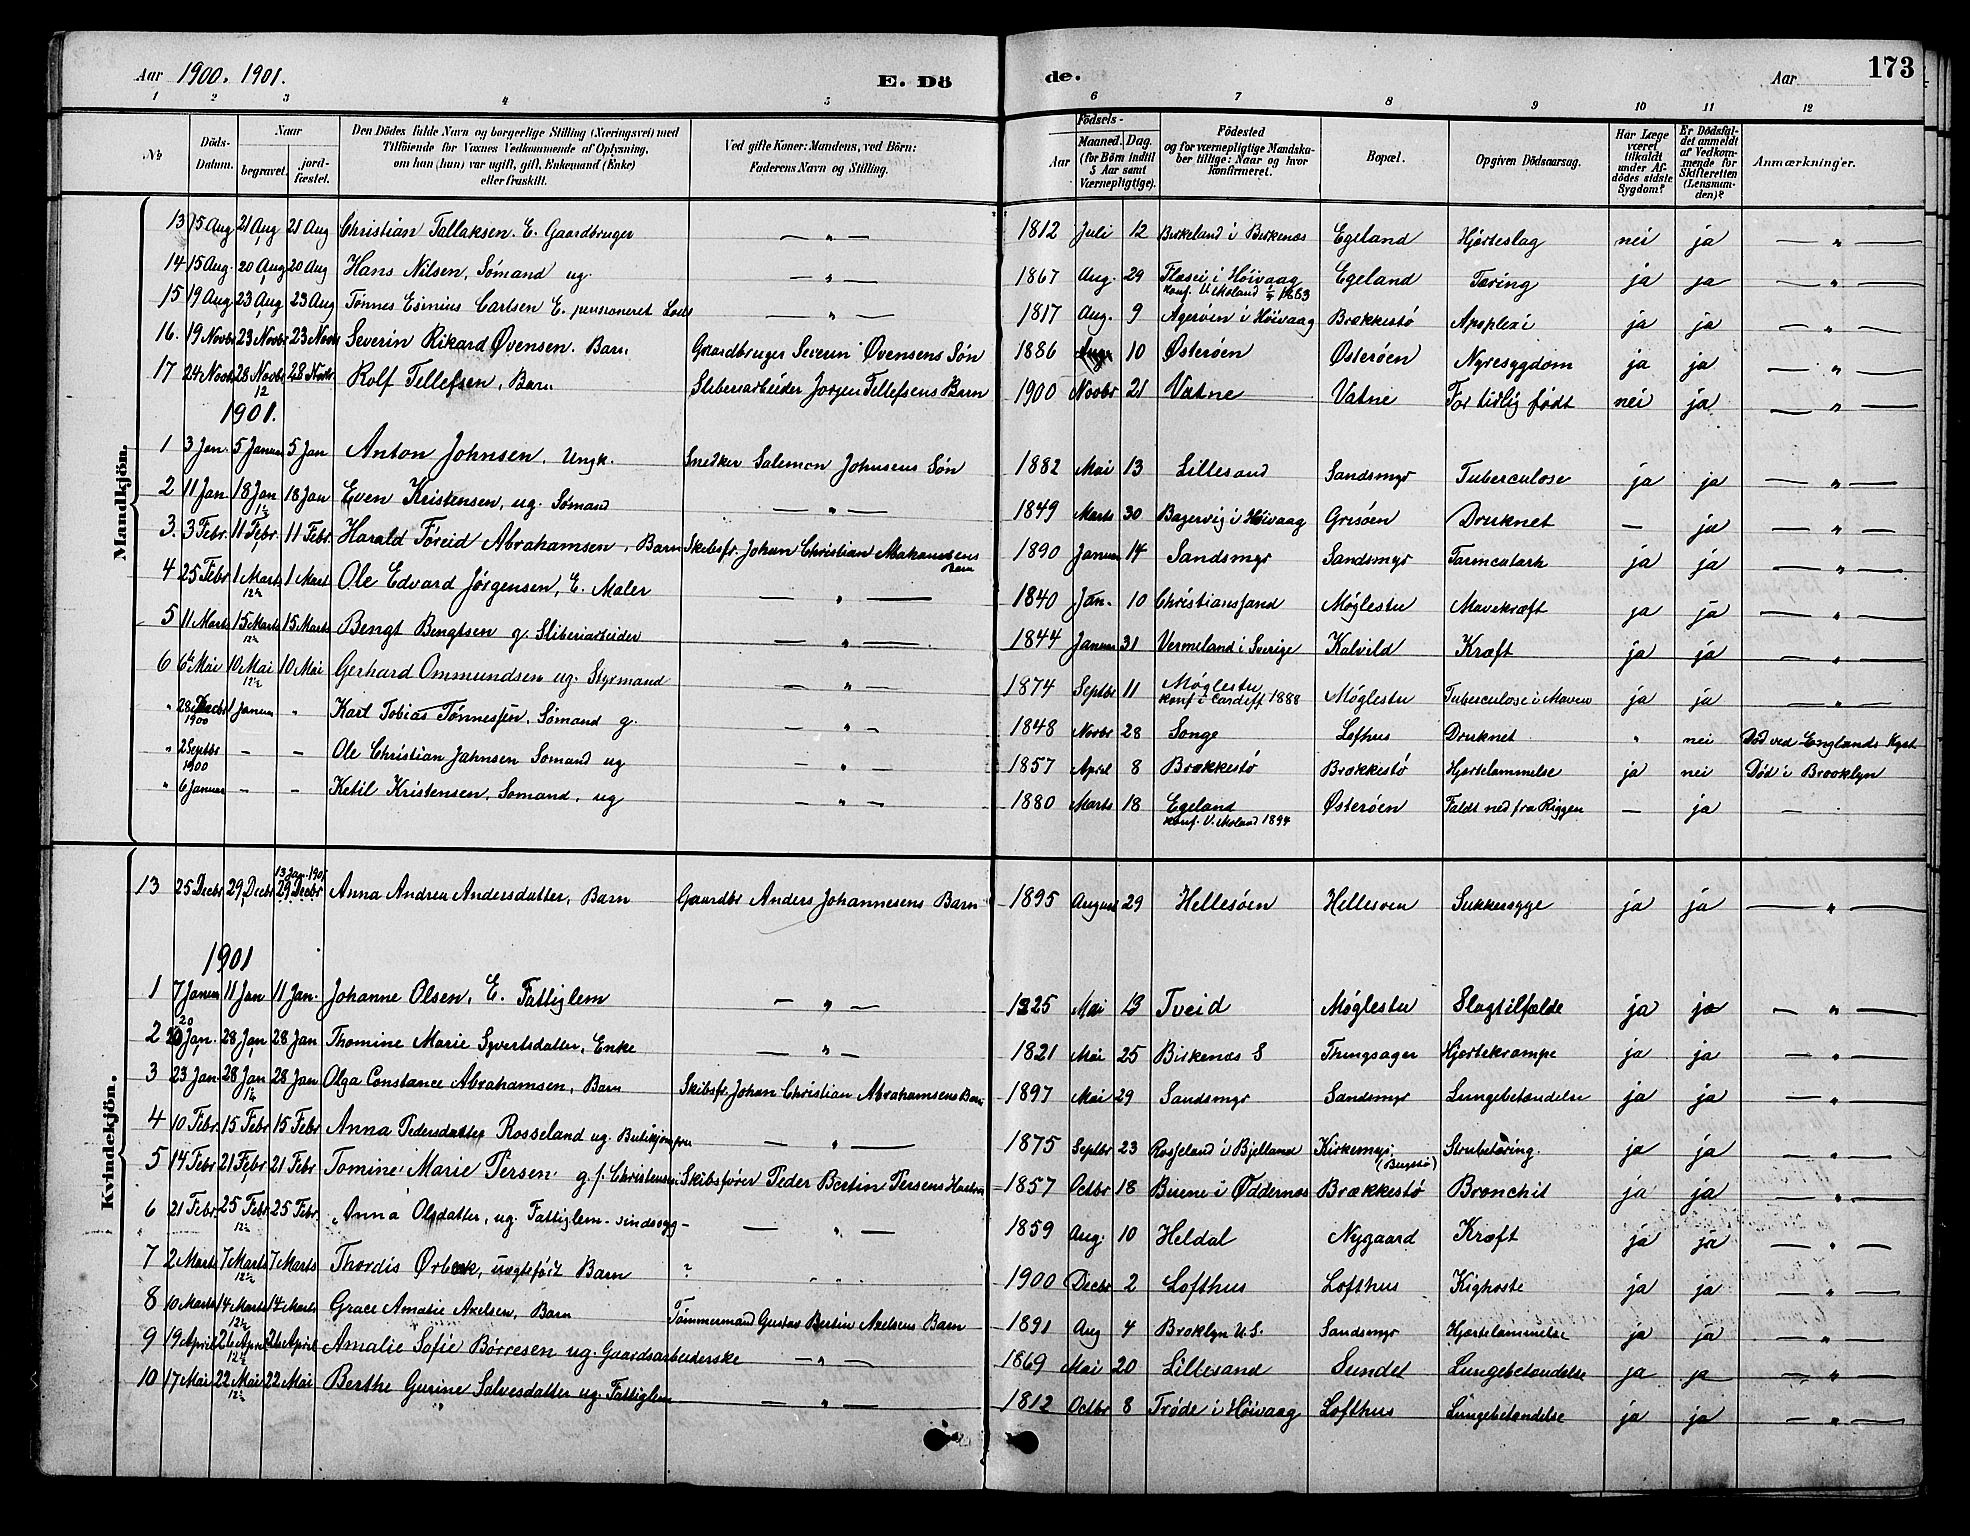 Aar 1900. 1901. E. Dö de. Aar 173
1 2 3 4 5 6 7 8 9 10 11 12
No Döds-Datum. Naar begravet. jord-fæstet. Den Dödes fulde Navn og borgerlige Stilling (Næringsvei) med Tilföiende for Voxnes Vedkommende af Oplysning, om han (hun) var ugift, gift, Enkemand (Enke) eller fraskilt. Ved gifte Koner: Mandens, ved Börn: Faderens Navn og Stilling. Födsels- Aar Maaned. Dag. (for Börn indtil 5 Aar samt Værnepligtige). Födested og for værnepligtige Mandskaber tillige: Naar og hvor konfirmeret. Bopæl. Opgiven Dödsaarsag. Har Læge været tilkaldt under Afdödes sidste Sygdom? Er Dödsfaldet anmeldt af Vedkommende for Skifteretten (Lensmanden)? Anmærkninger.
Mandkjön.
13 15 Aug 21 Aug 21 Aug Christian Tallaksen. E. Gaardbruger — " — 1812 Juli 12 Birkeland i Birkenæs Egeland Hjerteslag nei ja — " —
14 15 Aug. 20 Aug 20 Aug Hans Nilsen, Sömand ug. — " — 1867 Aug. 29 Flasei i Höivaag konf. V. Moland 1883 Egeland Tæring ja ja — " —
15 19 Aug. 23 Aug 23 Aug Tönnes Esinius Carlsen E. pensioneret Lods — " — 1817 Aug. 9 Agerøen i Höivaag Brækkestö Apoplexi ja ja — " —
16. 19 Novbr 23 Novbr 23 Novb Severin Rikard Øvensen. Barn Gaardbruger Severin Øvensens Sön 1886 10 Østerøen Østerøen Nyresygdom ja ja — " —
17 24 Novbr 28 Novbr 28 Novbr Rolf Tellefsen, Barn Sliberiarbeider Jørgen Tellefsens Barn 1900 Novbr 21 Vatne Vatne For tidlig födt nei ja — " —
12
1901.
1 3 Jan. 5 Januar 5 Jan Anton Johnsen, Ungk. Snedker Salemon Johnsens Sön 1882 Mai 13 Lillesand Sandsmyr Tuberculose ja ja — " —
2 11 Jan 18 Jan 18 Jan Even Kristensen, ug. Sömand — " — 1849 Marts 30 Bagervig i Höivaag Grisöen Druknet — ja — " —
3. 3 Febr. 11 Febr. 11 Febr. Harald Foreid Abrahamsen, Barn Skibsfr. Johan Christian Abrahamsens Barn 1890 Januar 14 Sandsmyr Sandsmyr Tarmcatarh ja ja — " —
4 25 Febr 1 Mart 1 Mart Ole Edvard Jörgensen, E. Maler — " — 1840 Jan. 10 Christianssand Möglestu Mavekræft ja ja — " —
5 11 Marts 15 Marts 15 Marts Bengt Bengtsen g. Sliberiarbeider — " — 1844 Januar 31 Vermeland i Sverige Kalvild Kræft ja ja — " —
6 6te Mai 10 Mai 10 Mai Gerhard Ommundsen ug. Styrmand — " — 1874 Septbr 11 Möglestu konf i Cardiff 1888 Möglestu Tuberculose i Maven ja ja — " —
" 28 Decbr 1900 Januar " Karl Tobias Tönnessen, Sömand g. — " — 1848 Novbr 28 Songe Lofthus Druknet " nei Död ved Englands Kyst
" 2 Septbr 1900 — — Ole Christian Jahnsen Sömand ug — " — 1857 April 8 Brækkestö Brækkestö Hjertelammelse ja nei Död i Brooklyn
" 6 Januar — — Ketil Kristensen, Sömand, ug — " — 1880 Marts 18 Egeland konf. V. Moland 1894 Østerøen Faldt ned fra Riggen — ja —
Kvindekjön.
13 25 Decbr 29 Decbr 29 Decbr Anna Andrea Andersdatter, Barn Gaardbr Anders Johannesens Barn 1895 August 29 Hellesöen Hellesöen Sukkersyge ja ja — " —
1901
1 7 Januar 11 Jan 11 Jan. Johanne Olsen, E. Fattiglem — " — 1825 Mai 13 Tveid Möglestu Slagtilfælde ja ja — " —
2 20 Jan 28 Jan 28 Jan Thomine Marie Syvertsdatter, Enke — " — 1821 Mai 25 Birkenæs S Thingsager Hjertekrampe ja ja — " —
3 23 Jan. 28 Jan 28 Jan Olga Constance Abrahamsen, Barn Skibsfr. Johan Christian Abrahamsens Barn 1897 Mai 29 Sandsmyr Sandsmyr Lungebetændelse ja ja — " —
4 10 Febr. 15 Febr 15 Febr Anna Pedersdatter Rosseland ug. Butikjomfru — " — 1875 Septbr 23 Rosseland i Bjelland Kirkemyr Strubetæring. ja ja — " —
5 14 Febr 21 Febr 21 Febr Tomine Marie Tersen g. f. Christensen Skibsförer Peder Bertin Tersens Hustru 1857 Octbr 18 Beiene i Oddernæs Brækkestö Bronchit ja ja — " —
6 21 Febr. 25 Febr 25 Febr. Anna Olsdatter, ug. Fattiglem - sindssyg — " — 1859 Aug. 10 Heldal Nygaard Kræft ja ja — " —
7 2 Marts 7 Marts 7 Marts Thordis Ørbæk, uægtefödt Barn ? " " 1900 Decbr 2 Lofthus Lofthus Kighoste ja ja — " —
8 10 Marts 14 Marts 14 Marts Grace Amalie Axelsen, Barn Tömmermand Gustav Bertin Axelsens Barn 1891 Aug 4 Broklyn U.S. Sandsmyr Hjertelammelse ja ja — " —
9 19 April 26 April 26 April Amalie Sofie Börresen ug. Gaardsarbeiderske — " — 1869 Mai 20 Lillesand Sundet Lungebetændelse ja ja — " —
10 17 Mai 22 Mai 22 Mai Berthe Gurine Salvesdatter ug. Fattiglem — " — 1812 Octbr 8 Tröde i Höivaag Lofthus Lungebetændelse ja ja — " —